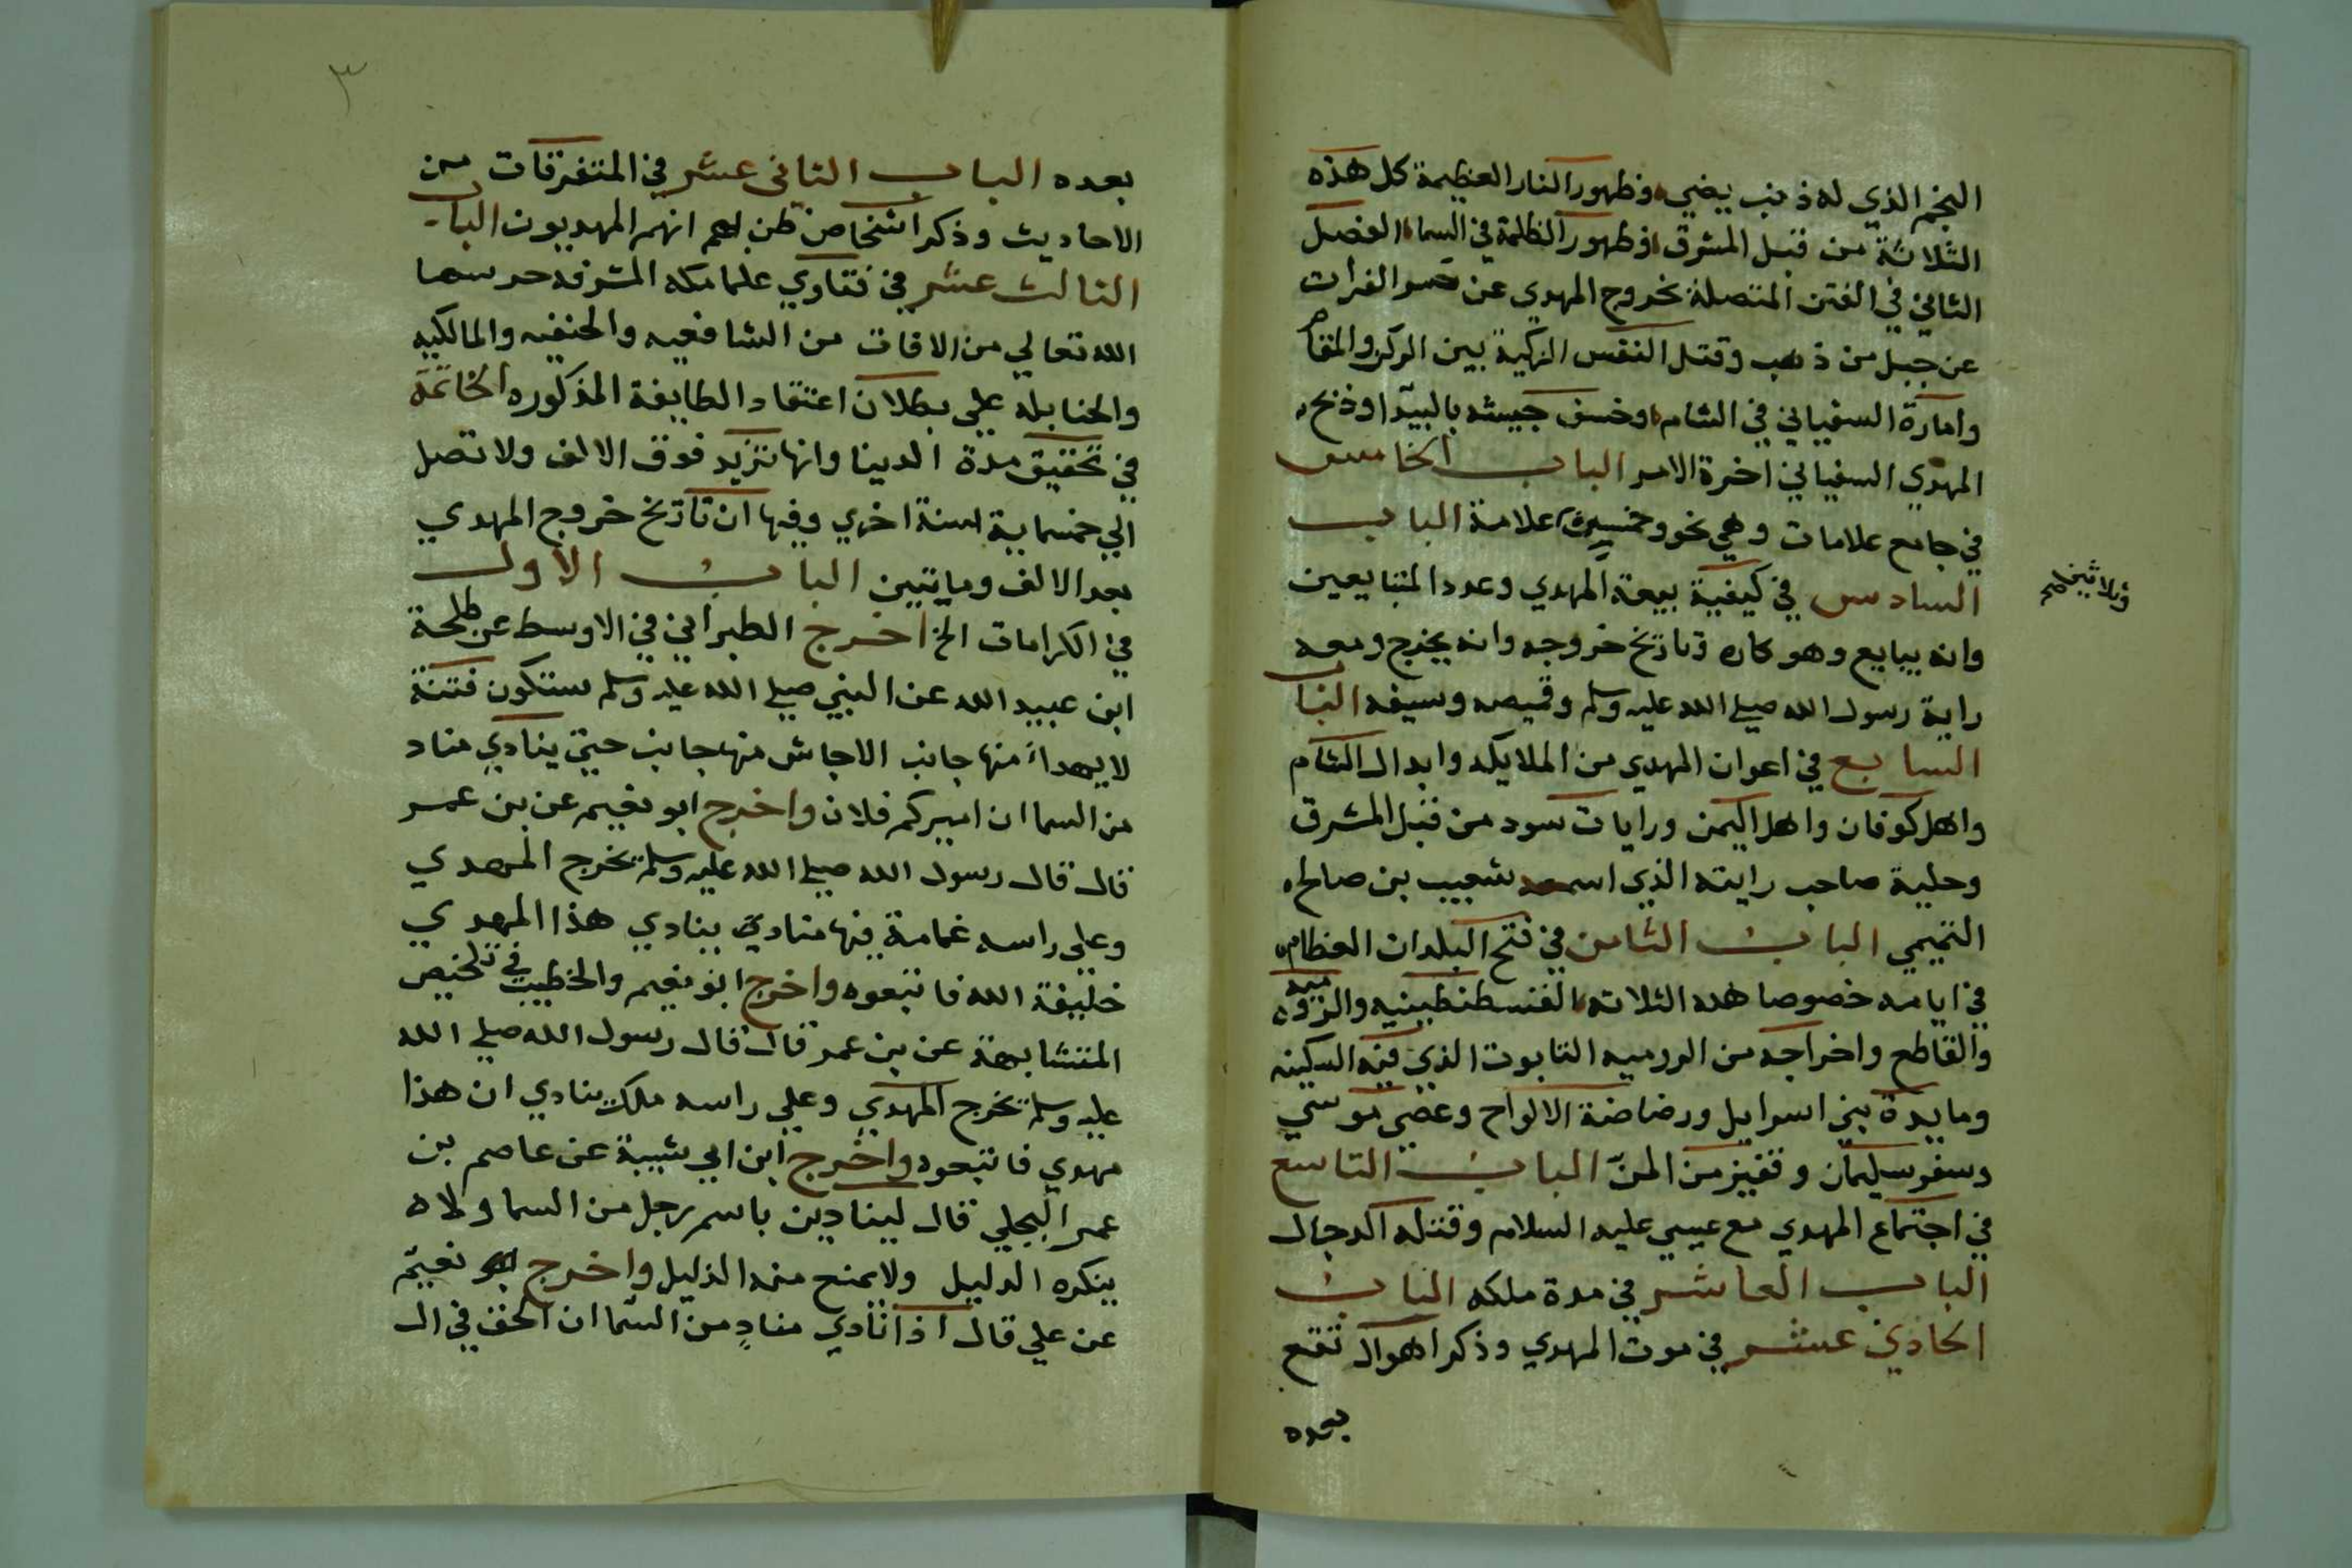 النجم الذي له ذنب يضيء وظهور النار العظيمة كل هذه
الثلاثة من قبل المشرق وظهور الظلمة في السماء الفصل
الثاني في الفتن المتصلة بخروج المهدي عن حسر الفرات
عن جبل من ذهب وقتل النفس الزكية بين الركن والمقام
وامارة السفياني في الشام وخسف جيشه بالبيدا وذبح
المهدي السفياني اخرة الامر الباب الخامس
في جامع علامات وهي نحو وخمسين علامة الباب
وثلاثين صح
السادس في كيفية بيعة المهدي وعدد المتبايعين
وانه يبايع وهو كاره وتاريخ خروجه وانه يخرج ومعه
راية رسول الله صلى الله عليه وسلم وقميصه وسيفه الباب
السابع في اعوان المهدي من الملايكه وابدال الشام
واهل كوفان واهل اليمن ورايات سود من قبل المشرق
وحلية صاحب رايته الذي اسمه شعيب بن صالح
التميمي الباب الثامن في فتح البلدان العظام
في ايامه خصوصا هده الثلاته القسطنطينيه والروميه
والقاطع واخراجه من الروميه التابوت الذي فيه السكينه
ومايدة بني اسرايل ورضاضة الالواح وعصى موسي
وسفر سليمان وقفيز من المن الباب التاسع
في اجتماع المهدي مع عيسي عليه السلام وقتله الدجال
الباب العاشر في مدة ملكه الباب
الحادي عشر في موت المهدي وذكر اهوال تقع
بعده
٣
بعده الباب الثاني عشر في المتفرقات من
الاحاديث وذكر اشخاص ظن بهم انهم المهديون الباب
الثالث عشر في فتاوي علما مكه المشرفه حرسها
الله تعالي من الافات من الشافعيه والحنفيه والمالكيه
والحنابله علي بطلان اعتقاد الطايفة المذكوره الخاتمة
في تحقيق مدة الدينا وانها تزيد فوق الالف ولا تصل
الي خمسماية سنة اخري وفيها ان تاريخ خروج المهدي
بعد الالف ومايتين الباب الاول
في الكرامات الخ اخرج الطبراني في الاوسط عن طلحة
ابن عبيد الله عن النبي صلي الله عليه وسلم ستكون فتنة
لا يهدا منها جانب الا جاش منها جانب حتي ينادي مناد
من السما ان اميركم فلان واخرج ابو نعيم عن بن عمر
قال قال رسول الله صلي الله عليه وسلم يخرج المهدي
وعلي راسه غمامة فيها منادي ينادي هذا المهدي
خليفة الله فاتبعوه واخرج ابو نعيم والخطيب في تلخيص
المتشابهة عن بن عمر قال قال رسول الله صلي الله
عليه وسلم يخرج المهدي وعلي راسه ملك ينادي ان هذا
مهدي فاتبعوه واخرج ابن ابي شيبة عن عاصم بن
عمر البجلي قال لينادين باسم رجل من السما ولا
ينكره الدليل ولا يمنع منه الذليل واخرج ابو نعيم
عن علي قال اذا نادي مناد من السما ان الحق في ال